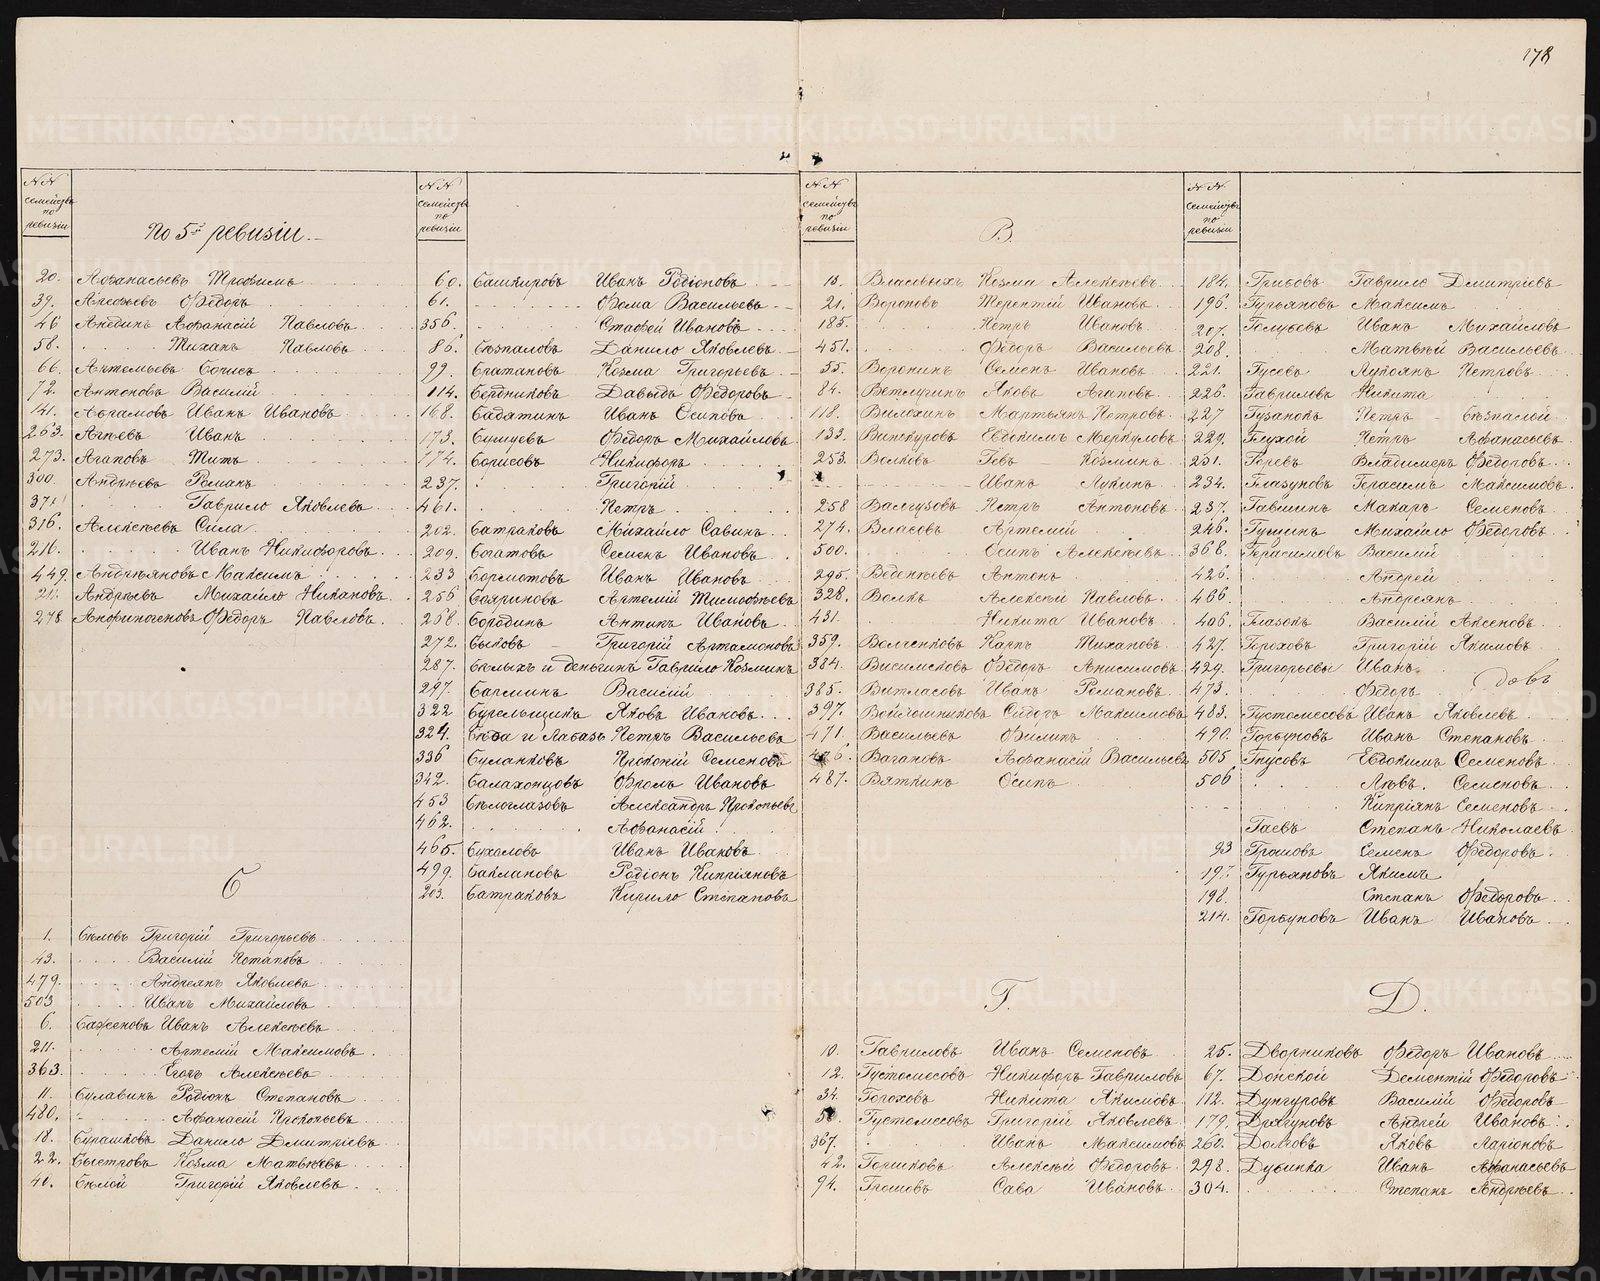 178
NN семействъ по ревизіи
По 5й ревизіи
20. Афанасьевъ Трофимъ
39. Арефьевъ Ѳедоръ
46 Анединъ Афанасій Павловъ
58. Тиханъ Павловъ
66. Артемьевъ Борисъ
72. Антоновъ Василій
141. Авгамовъ Иванъ Ивановъ
263. Агѣевъ Иванъ
273. Агаповъ Титъ
300. Андрѣевъ Романъ
371 Гаврило Яковлевъ
316. Алексѣевъ Сила
216. Иванъ Никифоровъ
449. Андрѣяновъ Максимъ
211. Андрѣевъ Михайло Никановъ
278 Анфиногеновъ Ѳедоръ Павловъ
Б
1. Бѣловъ Григорій Григорьевъ
43. Василій Потаповъ
479. Андреянъ Яковлевъ
503 Иванъ Михайловъ
6. Баженовъ Иванъ Алексѣевъ
211. Артемій Максимовъ
363. Егоръ Алексѣевъ
11. Булавинъ Родіонъ Степановъ
480. Афанасій Прокопьевъ
18. Бурашковъ Данило Дмитріевъ
22. Быстровъ Козма Матвѣевъ
40. Бѣлой Григорій Яковлевъ
NN семействъ по ревизіи
60. Башкировъ Иванъ Родіоновъ
61. Ѳома Васильевъ
356. Стафей Ивановъ
86. Безпаловъ Данило Яковлевъ
99. Братановъ Козма Григорьевъ
114. Бердниковъ Давыдъ Ѳедоровъ
168. Бадятинъ Иванъ Осиповъ
173. Бушуевъ Ѳедоръ Михайловъ
174. Борисовъ Никифоръ
237. Григорій
461. Петръ
202. Батраковъ Михайло Савинъ
209. Богатовъ Семенъ Ивановъ
233 Бормотовъ Иванъ Ивановъ
256 Бояриновъ Артемій Тимофѣевъ
268. Бородинъ Антипъ Ивановъ
272. Быковъ Григорій Артамоновъ
287. Бѣлыхъ и Деньгинъ Гаврило Козминъ
297. Барминъ Василій
322 Бурельщикъ Яковъ Ивановъ
324. Бѣда и Лабазъ Петръ Васильевъ
336 Буланковъ Прокопій Семеновъ
342. Балахонцовъ Фролъ Ивановъ
453 Бѣлоглазовъ Александръ Прокопьевъ
462. Афанасій
465. Бухаловъ Иванъ Ивановъ
499. Баклановъ Родіонъ Кипріяновъ
203. Батраковъ Кирило Степановъ
NN семействъ по ревизіи
В.
13. Власовыхъ Козма Алексѣевъ
21. Вороновъ Терентій Ивановъ
185. Петръ Ивановъ
451. Ѳедоръ Васильевъ
35. Воронинъ Семенъ Ивановъ
84. Ветлугинъ Яковъ Агаповъ
118. Вилохинъ Мартьянъ Петровъ
133. Винокуровъ Евдокимъ Меркуловъ
253. Волковъ Левъ Козминъ
Иванъ Лукинъ
258 Валгузовъ Петръ Антоновъ
274. Власовъ Артемій
500. Осипъ Алексѣевъ
295. Веденѣевъ Антонъ
328. Волкъ Алексѣй Павловъ
431. Никита Ивановъ
359. Волченковъ Карпъ Тихановъ
384. Висимсковъ Ѳедоръ Анисимовъ
385. Витласовъ Иванъ Романовъ
397. Войлошниковъ Сидоръ Максимовъ
471. Васильевъ Филипъ
Вагановъ Афанасій Васильевъ
487. Вяткинъ Осипъ
Г.
10. Гавриловъ Иванъ Семеновъ
12. Густомесовъ Никифоръ Гавриловъ
34. Гороховъ Никита Якимовъ
Густомесовъ Григорій Яковлевъ
367. Иванъ Максимовъ
42. Горшковъ Алексѣй Ѳедоровъ
94. Грошовъ Сава Ивановъ
NN семействъ по ревизіи
184. Грибовъ Гаврило Дмитріевъ
196. Гурьяновъ Максимъ
207. Голубевъ Иванъ Михайловъ
208. Матвѣй Васильевъ
221. Гусевъ Лукоянъ Петровъ
226. Гавриловъ Никита
227 Гузанокъ Петръ Безпалый
229. Глухой Петръ Афанасьевъ
231. Горевъ Владимеръ Ѳедоровъ
234. Глазуновъ Герасимъ Максимовъ
237. Гавшинъ Макаръ Семеновъ
246. Гущинъ Михайло Ѳедоровъ
368. Герасимовъ Василій
426. Андрей
466 Андреянъ
406. Глазокъ Василій Аксеновъ
427. Гороховъ Григорій Якимовъ
429. Григорьевы Иванъ
473. Ѳедоръ
483. Густомесовъ Иванъ Яковлевъ
490. Горбуновъ Иванъ Степановъ
505 Гнусовъ Евдокимъ Семеновъ
506 Левъ Семеновъ
Кипріянъ Семеновъ
Гаевъ Степанъ Николаевъ
93 Грошовъ Семенъ Ѳедоровъ
197. Гурьяновъ Якимъ
198. Степанъ Ѳедоровъ
214. Горбуновъ Иванъ Ивановъ
Д.
25. Дворниковъ Ѳедоръ Ивановъ
67. Донской Дементій Ѳедоровъ
112. Дунгуровъ Василій Ѳедоровъ
179. Дрягуновъ Андрей Ивановъ
260. Долговъ Яковъ Ларіоновъ
298. Дубинка Иванъ Афанасьевъ
304. Степанъ Андрѣевъ
METRIKI.GASO-URAL.RU